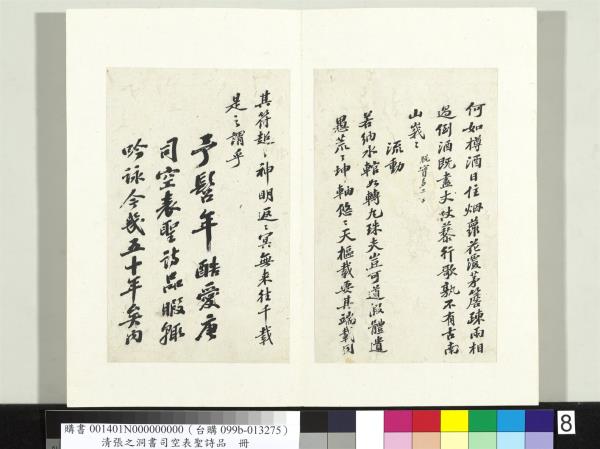 何如樽酒日往烟蘿花覆茅簷疎雨相
過倒酒既盡丈杖藜行歌孰不有古南
山峩〻
流動
若納水輨如轉丸珠夫豈可道假體遺
愚荒〻坤軸悠〻天樞載要其端載同
其符超〻神明返〻冥無来往千載
是之謂乎
予髫年酷愛唐
司空表聖詩品暇輒
吟詠今幾五十年矣内
購書 001401N000000000 (台購 099b-013275)
清張之洞書司空表聖詩品 冊
8